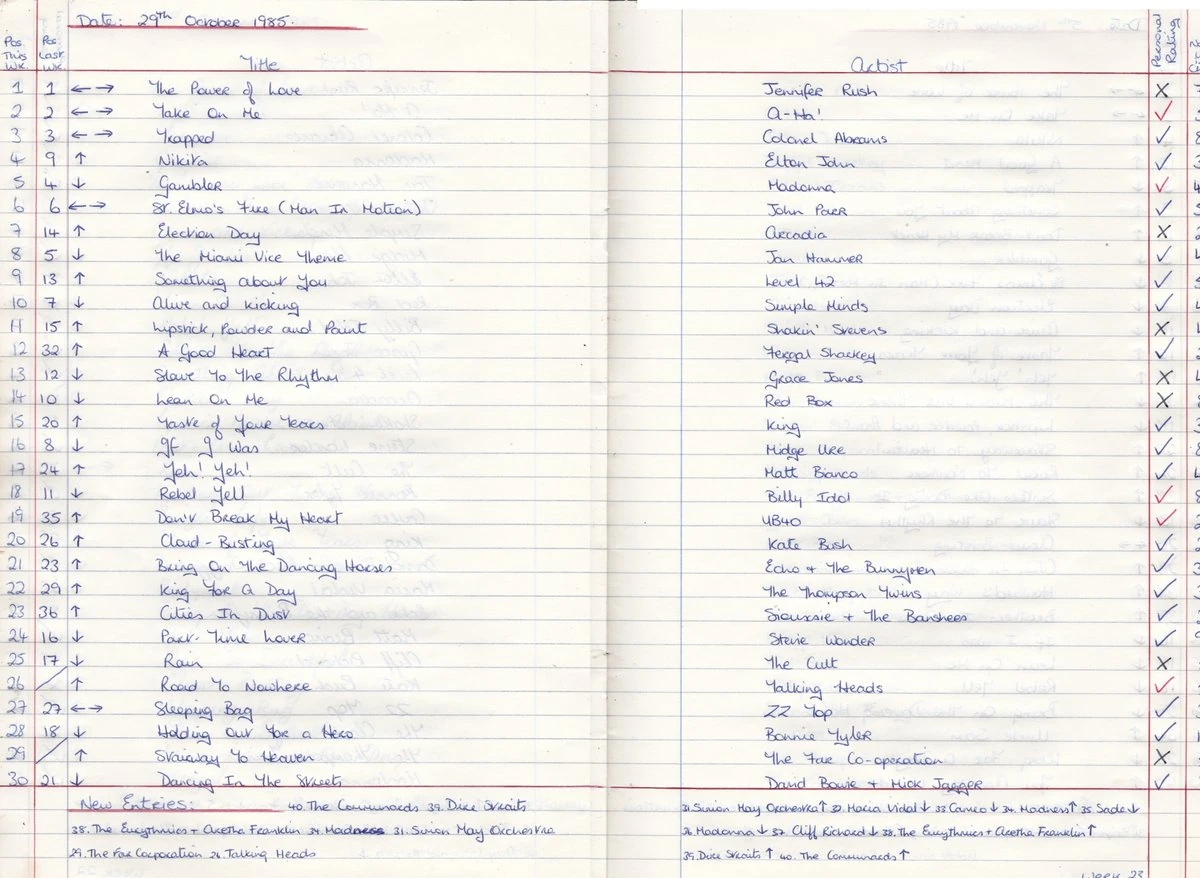 Date: 29th October 1985.
Pos. This Wk. Pos. Last Wk. Title Artist Personal Rating
1 1 ←→ The Power of Love Jennifer Rush X
2 2 ←→ Take On Me A-Ha' ✓
3 3 ←→ Trapped Colonel Abrams ✓
4 9 ↑ Nikita Elton John ✓
5 4 ↓ Gambler Madonna ✓
6 6 ←→ St. Elmo's Fire (Man In Motion) John Parr ✓
7 14 ↑ Election Day Arcadia X
8 5 ↓ The Miami Vice Theme Jan Hammer ✓
9 13 ↑ Something about You Level 42 ✓
10 7 ↓ Alive and Kicking Simple Minds ✓
11 15 ↑ Lipstick, Powder and Paint Shakin' Stevens X
12 32 ↑ A Good Heart Fergal Sharkey ✓
13 12 ↓ Slave To The Rhythm Grace Jones X
14 10 ↓ Lean On Me Red Box X
15 20 ↑ Taste of Your Tears King ✓
16 8 ↓ If I Was Midge Ure ✓
17 24 ↑ Yeh! Yeh! Matt Bianco ✓
18 11 ↓ Rebel Yell Billy Idol ✓
19 35 ↑ Don't Break My Heart UB40 ✓
20 26 ↑ Cloud-Busting Kate Bush ✓
21 23 ↑ Bring On The Dancing Horses Echo + The Bunnymen ✓
22 29 ↑ King For A Day The Thompson Twins ✓
23 36 ↑ Cities In Dust Siouxsie + The Banshees ✓
24 16 ↓ Part-Time Lover Stevie Wonder ✓
25 17 ↓ Rain The Cult X
26 / ↑ Road To Nowhere Talking Heads ✓
27 27 ←→ Sleeping Bag ZZ Top ✓
28 18 ↓ Holding Out For a Hero Bonnie Tyler ✓
29 / ↑ Stairway To Heaven The Far Co-operation X
30 21 ↓ Dancing In The Streets David Bowie + Mick Jagger ✓
New Entries: 40. The Communards 39. Dire Straits
38. The Eurythmics + Aretha Franklin 34. Madness 31. Simon May Orchestra
29. The Far Corporation 26. Talking Heads
31. Simon May Orchestra ↑ 32. Maria Vidal ↓ 33 Cameo ↓ 34. Madness ↑ 35. Sade ↓
36 Madonna ↓ 37. Cliff Richard ↓ 38. The Eurythmics + Aretha Franklin ↑
39. Dire Straits ↑ 40. The Communards ↑
Week 23